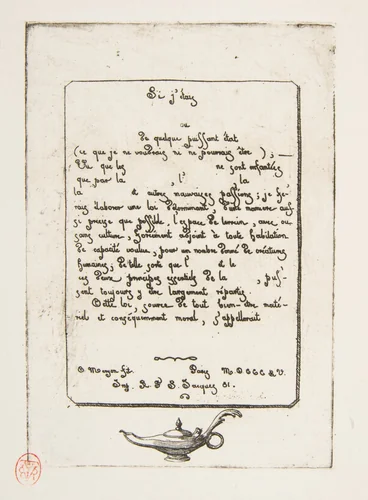 Si j'étais
ou
de quelque puissant état
(ce que je ne voudrais ni ne pourrais être); —
Vu que les ne sont enfantées
que par la , l' la
la et autres mauvaises passions; je fe-
rais élaborer une loi déterminant d'une manière aus-
si précise que possible l'espace de terrain, avec ou
sans culture, forcément adjoint à toute habitation
de capacité voulue, pour un nombre donné de créatures
humaines; de telle sorte que l' et le
ces deux principes essentiels de la , puis-
sent toujours y être largement répartis.
Cette loi, source de tout bien-être maté-
riel et conséquemment moral, s'appellerait
C. Meryon ft. Paris M.DCCC.LV.
Imp. R. Sr. Jacques